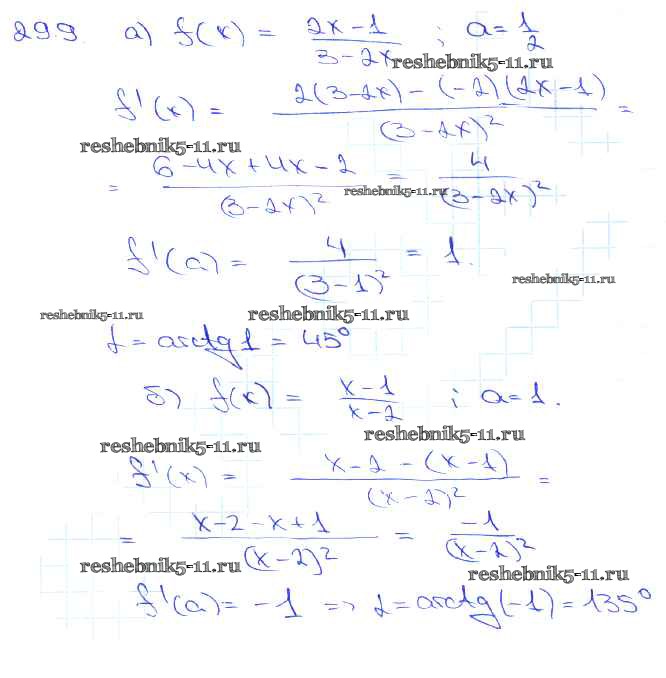 29.9. а) f(x) = (2x-1)/(3-2x) ; a = 1/2
reshebnik5-11.ru
f'(x) = (2(3-2x) - (-2)(2x-1))/(3-2x)² =
reshebnik5-11.ru
= (6-4x+4x-2)/(3-2x)² = 4/(3-2x)²
reshebnik5-11.ru
f'(a) = 4/(3-1)² = 1.
reshebnik5-11.ru
reshebnik5-11.ru reshebnik5-11.ru
α = arctg 1 = 45°
б) f(x) = (x-1)/(x-2) ; a = 1.
reshebnik5-11.ru
reshebnik5-11.ru
f'(x) = (x-2-(x-1))/(x-2)² =
= (x-2-x+1)/(x-2)² = -1/(x-2)²
reshebnik5-11.ru reshebnik5-11.ru
f'(a) = -1 => α = arctg(-1) = 135°